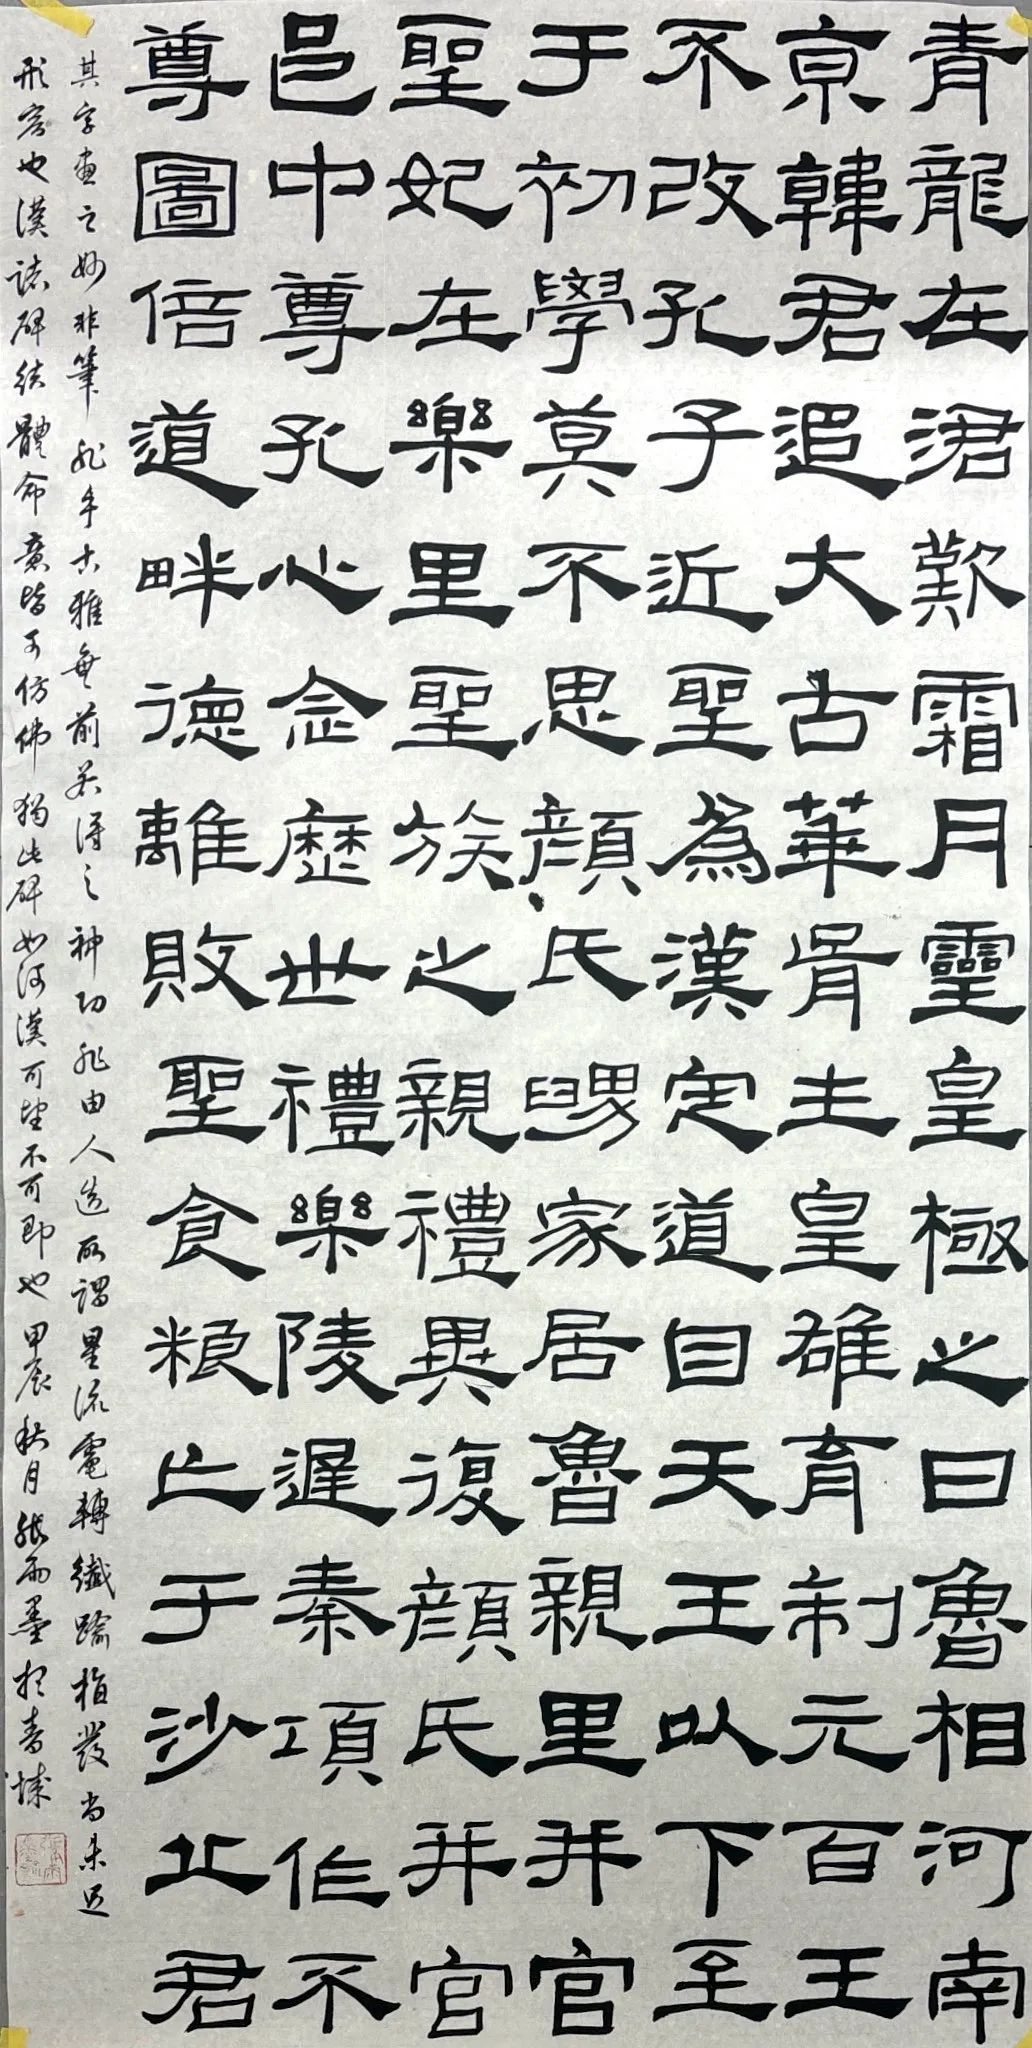 青龍在涒歎霜月靈皇極之日魯相河南
京韓君追大古華胥主皇雄育制元百王
不改孔子近聖為漢定道自天王以下至
于初學莫不思顏氏舅家居魯親里并官
聖妃在樂里聖族之親禮異復顏氏并官
邑中尊孔心念歷世禮樂陵遲秦項作不
尊圖倍道畔德離敗聖食粮亡于沙丘君
其字畫之妙非筆非手古雅無前若得之神功非由人造所謂星流電轉纖踰植發尚未足
形容也漢諸碑結體命意皆可仿佛獨此碑如河漢可望不可即也甲辰秋月張雨墨於青城